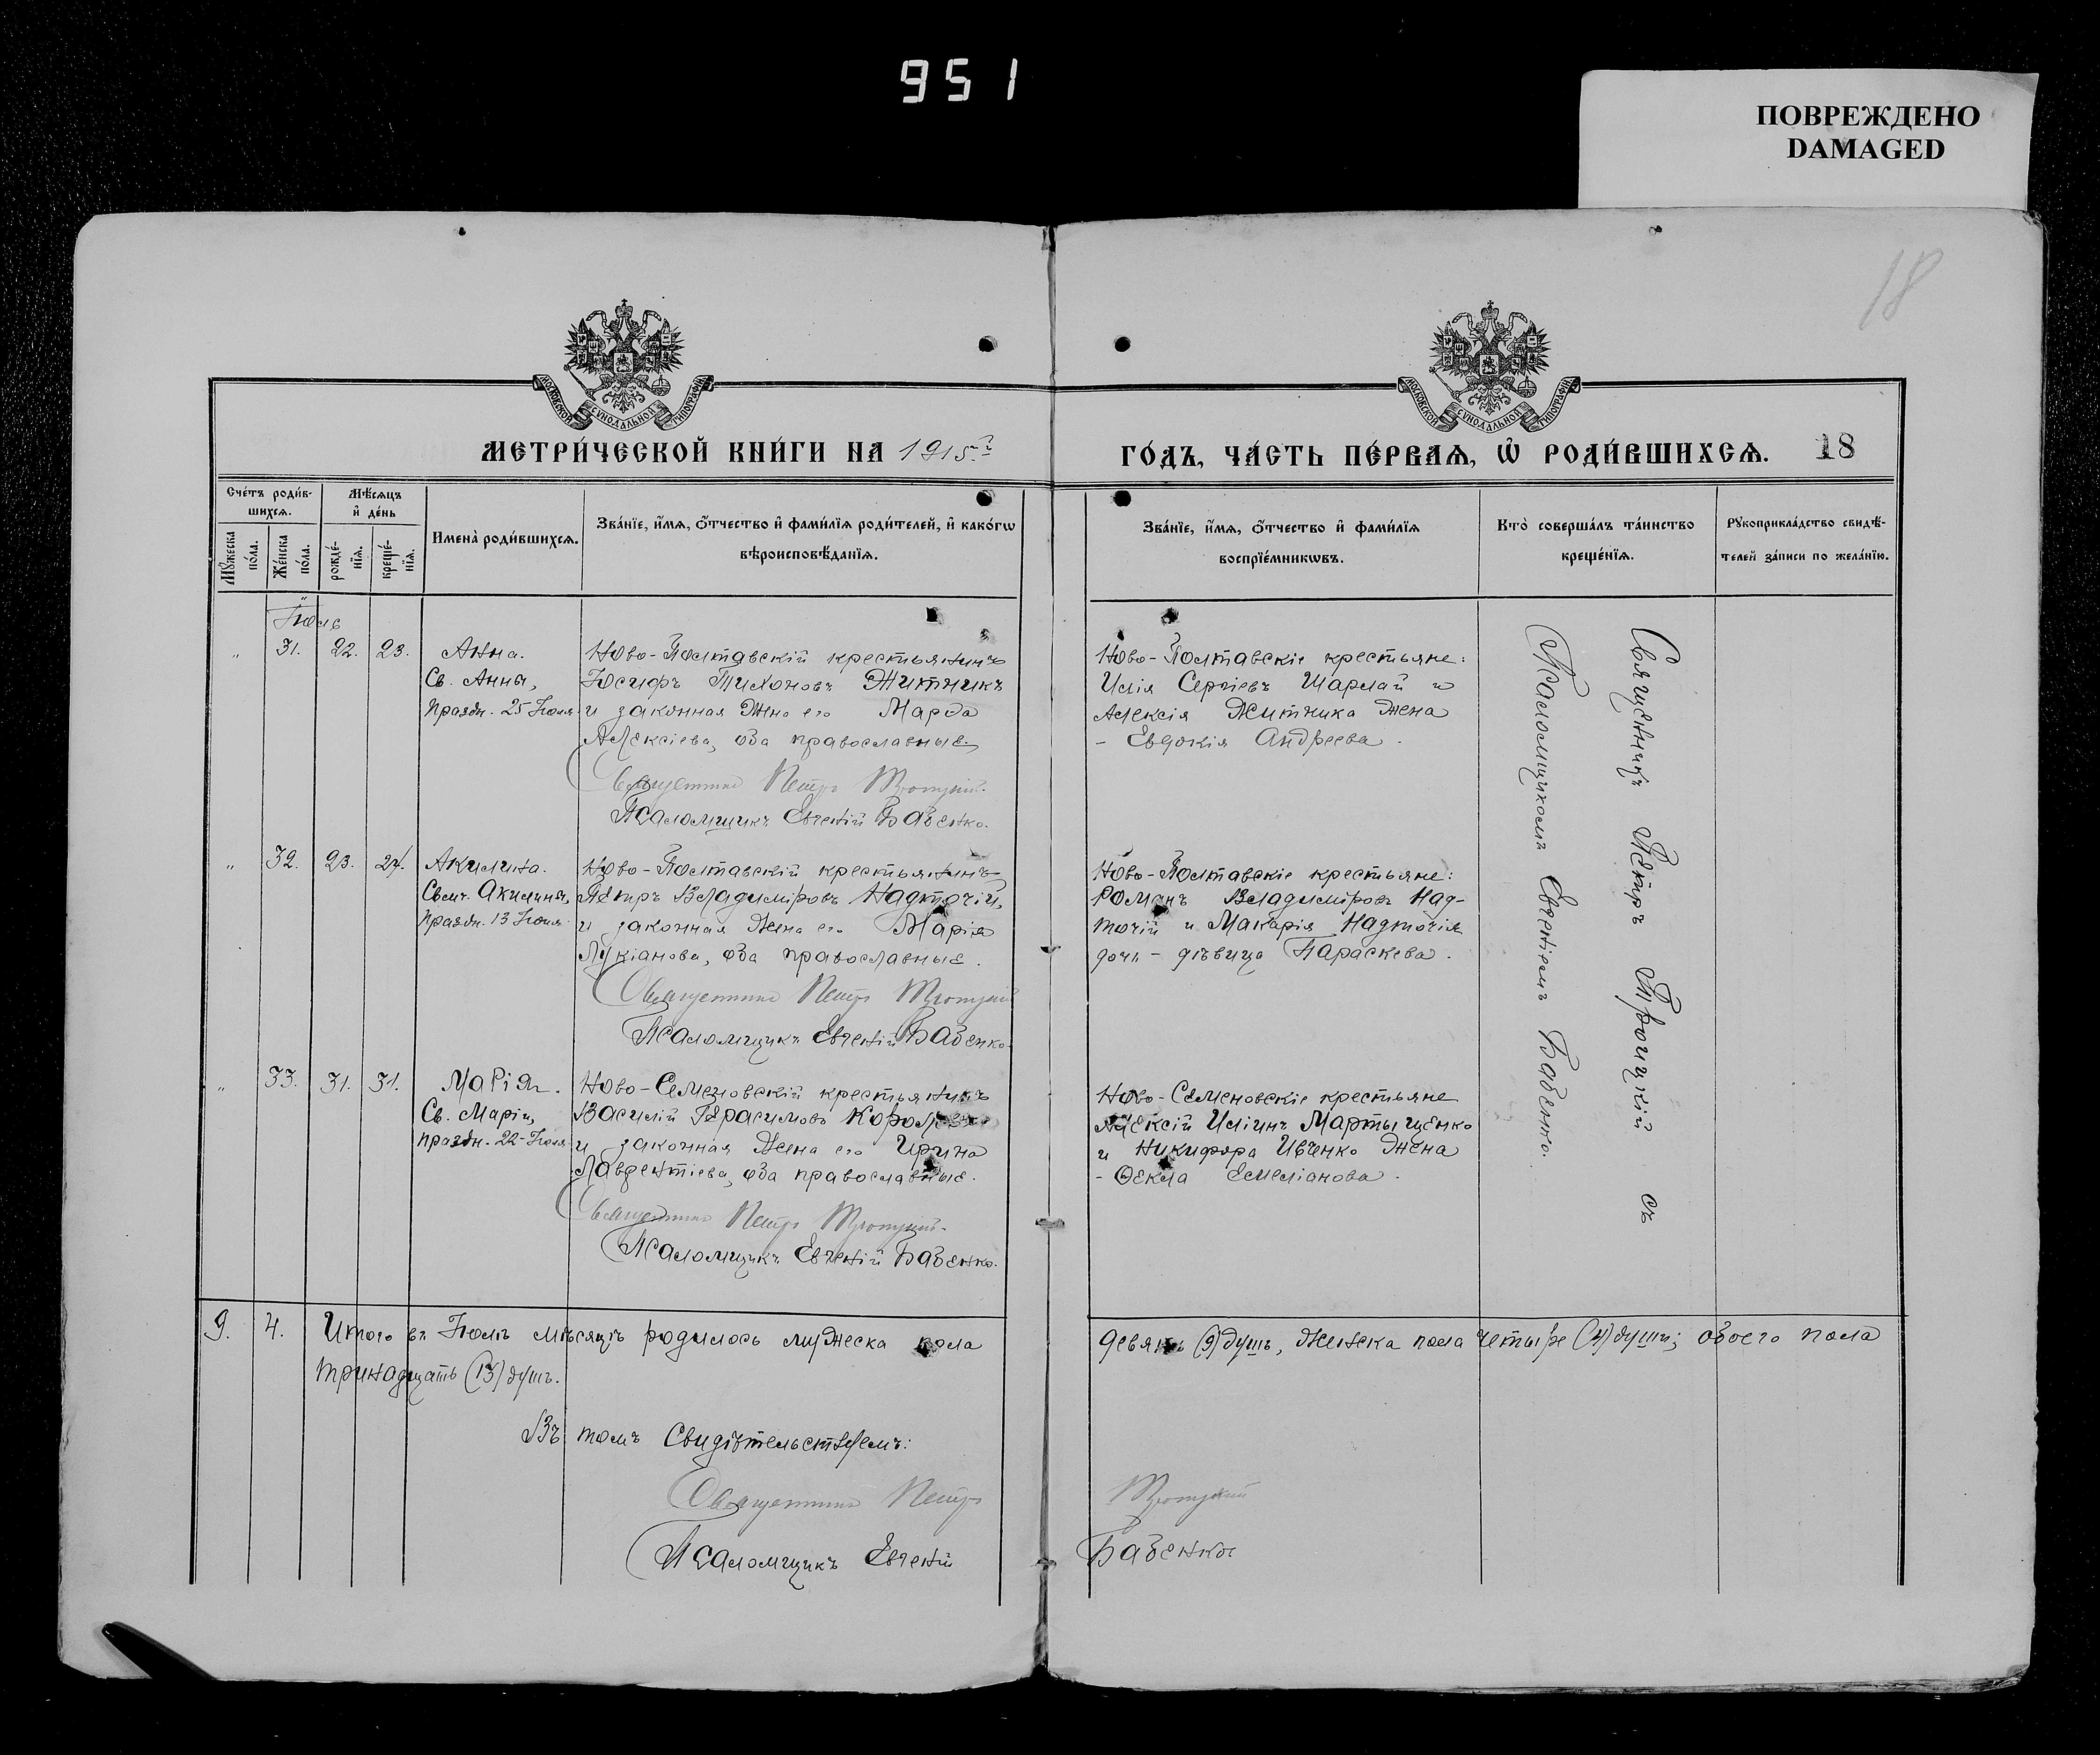 951
ПОВРЕЖДЕНО
DAMAGED
18
МОСКОВСКОЙ СѴНОДАЛЬНОЙ ТИПОГРАФІИ
МОСКОВСКОЙ СѴНОДАЛЬНОЙ ТИПОГРАФІИ
МЕТРИ́ЧЕСКОЙ КНИ́ГИ НА 1915 г.
ГО́ДЪ, ЧА́СТЬ ПЕ́РВАѦ, Ѡ҆ РОДИ́ВШИХСѦ. 18
Сче́тъ роди́в-
шихсѧ.
Мѣ́сѧцъ
и҆ де́нь
Мꙋ́жеска
по́ла.
Же́нска
по́ла.
рожде́-
нїѧ.
креще́-
нїѧ.
Имена̀ роди́вшихсѧ.
Зва́нїе, и҆́мѧ, ѻ҆́тчество и҆ фами́лїѧ роди́телей, и҆ како́гѡ
вѣроисповѣ́данїѧ.
Зва́нїе, и҆́мѧ, ѻ҆́тчество и҆ фами́лїѧ
воспрїе́мникѡвъ.
Кто̀ соверша́лъ та́инство
креще́нїѧ.
Рꙋкоприкла́дство свидѣ́-
телей за́писи по жела́нїю.
Іюль
" 31. 22. 23. Анна.
Св. Анны,
праздн. 25 Іюля
Ново-Полтавскій крестьянинъ
Іосифъ Тихоновъ Житникъ
и законная жена его Марѳа
Алексіева, оба православные.
Священникъ Петръ Троицкій.
Псаломщикъ Евгеній Бабенко.
Ново-Полтавскіе крестьяне:
Илія Сергіевъ Шарлай и
Алексія Житника жена
- Евдокія Андреева.
" 32. 23. 24. Акилина.
Свмч. Акилины,
праздн. 13 Іюня
Ново-Полтавскій крестьянинъ
Петръ Владиміровъ Надточій,
и законная жена его Марія
Лукіанова, оба православные.
Священникъ Петръ Троицкій
Псаломщикъ Евгеній Бабенко.
Ново-Полтавскіе крестьяне:
Романъ Владиміровъ Над-
точій и Макарія Надточія
дочь - дѣвица Параскева.
" 33. 31. 31. Марія.
Св. Маріи,
праздн. 22-Іюля
Ново-Семеновскій крестьянинъ
Василій Герасимовъ
и законная жена его Ирина
Лаврентіева, оба православные.
Священникъ Петръ Троицкій.
Псаломщикъ Евгеній Бабенко.
Ново-Семеновскіе крестьяне
Алексій Иліинъ Мартыщенко
и Никифора Ивченко жена
- Ѳекла Емеліанова.
Священникъ Петръ Троицкій съ
Псаломщикомъ Евгеніемъ Бабенко.
9. 4. Итого въ Іюлѣ мѣсяцѣ родилось мужеска пола
девять (9) душъ, женска пола четыре (4) души; обоего пола
тринадцать (13) душъ.
Въ томъ свидѣтельствуемъ:
Священникъ Петръ Троицкій
Псаломщикъ Евгеній Бабенко